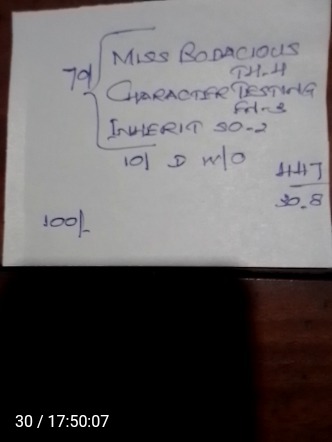 MISS BODACIOUS
TH-4
70/ CHARACTER TESTING
FH-3
INHERIT SO-2
10/ D W/O
447
30.8
100/-
30 / 17:50:07